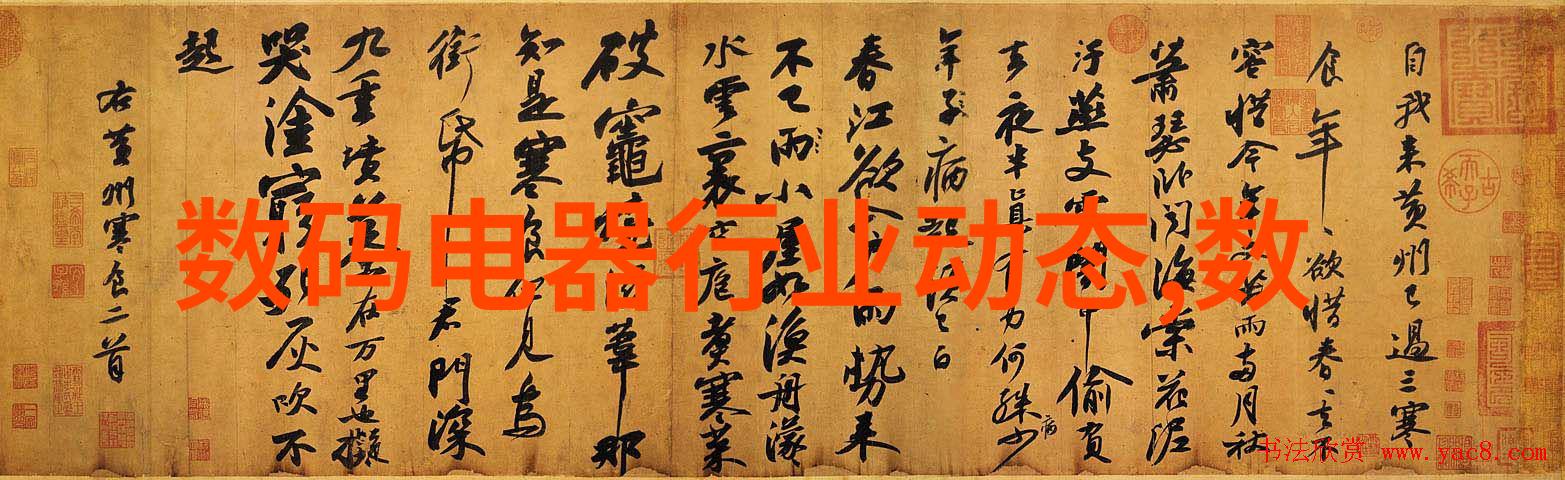 自我来黄州已過三寒
食年、欲惜春、去不
容惜今年又苦雨兩月秋
蕭瑟卧聞海棠花泥
汙燕支雪闇中偷負
去夜半真有力何殊少
病
年子病起須已白
春江欲入户雨勢来
不已雨小屋如漁舟濛
水雲裏空庖煮寒菜
破竈燒濕葦那
知是寒食但見烏
銜帋君門深
九重墳墓在万里也擬
哭塗窮死灰吹不
起
右黄州寒食二首
数码电器行业动态,数
书法欣赏 www.yac8.com